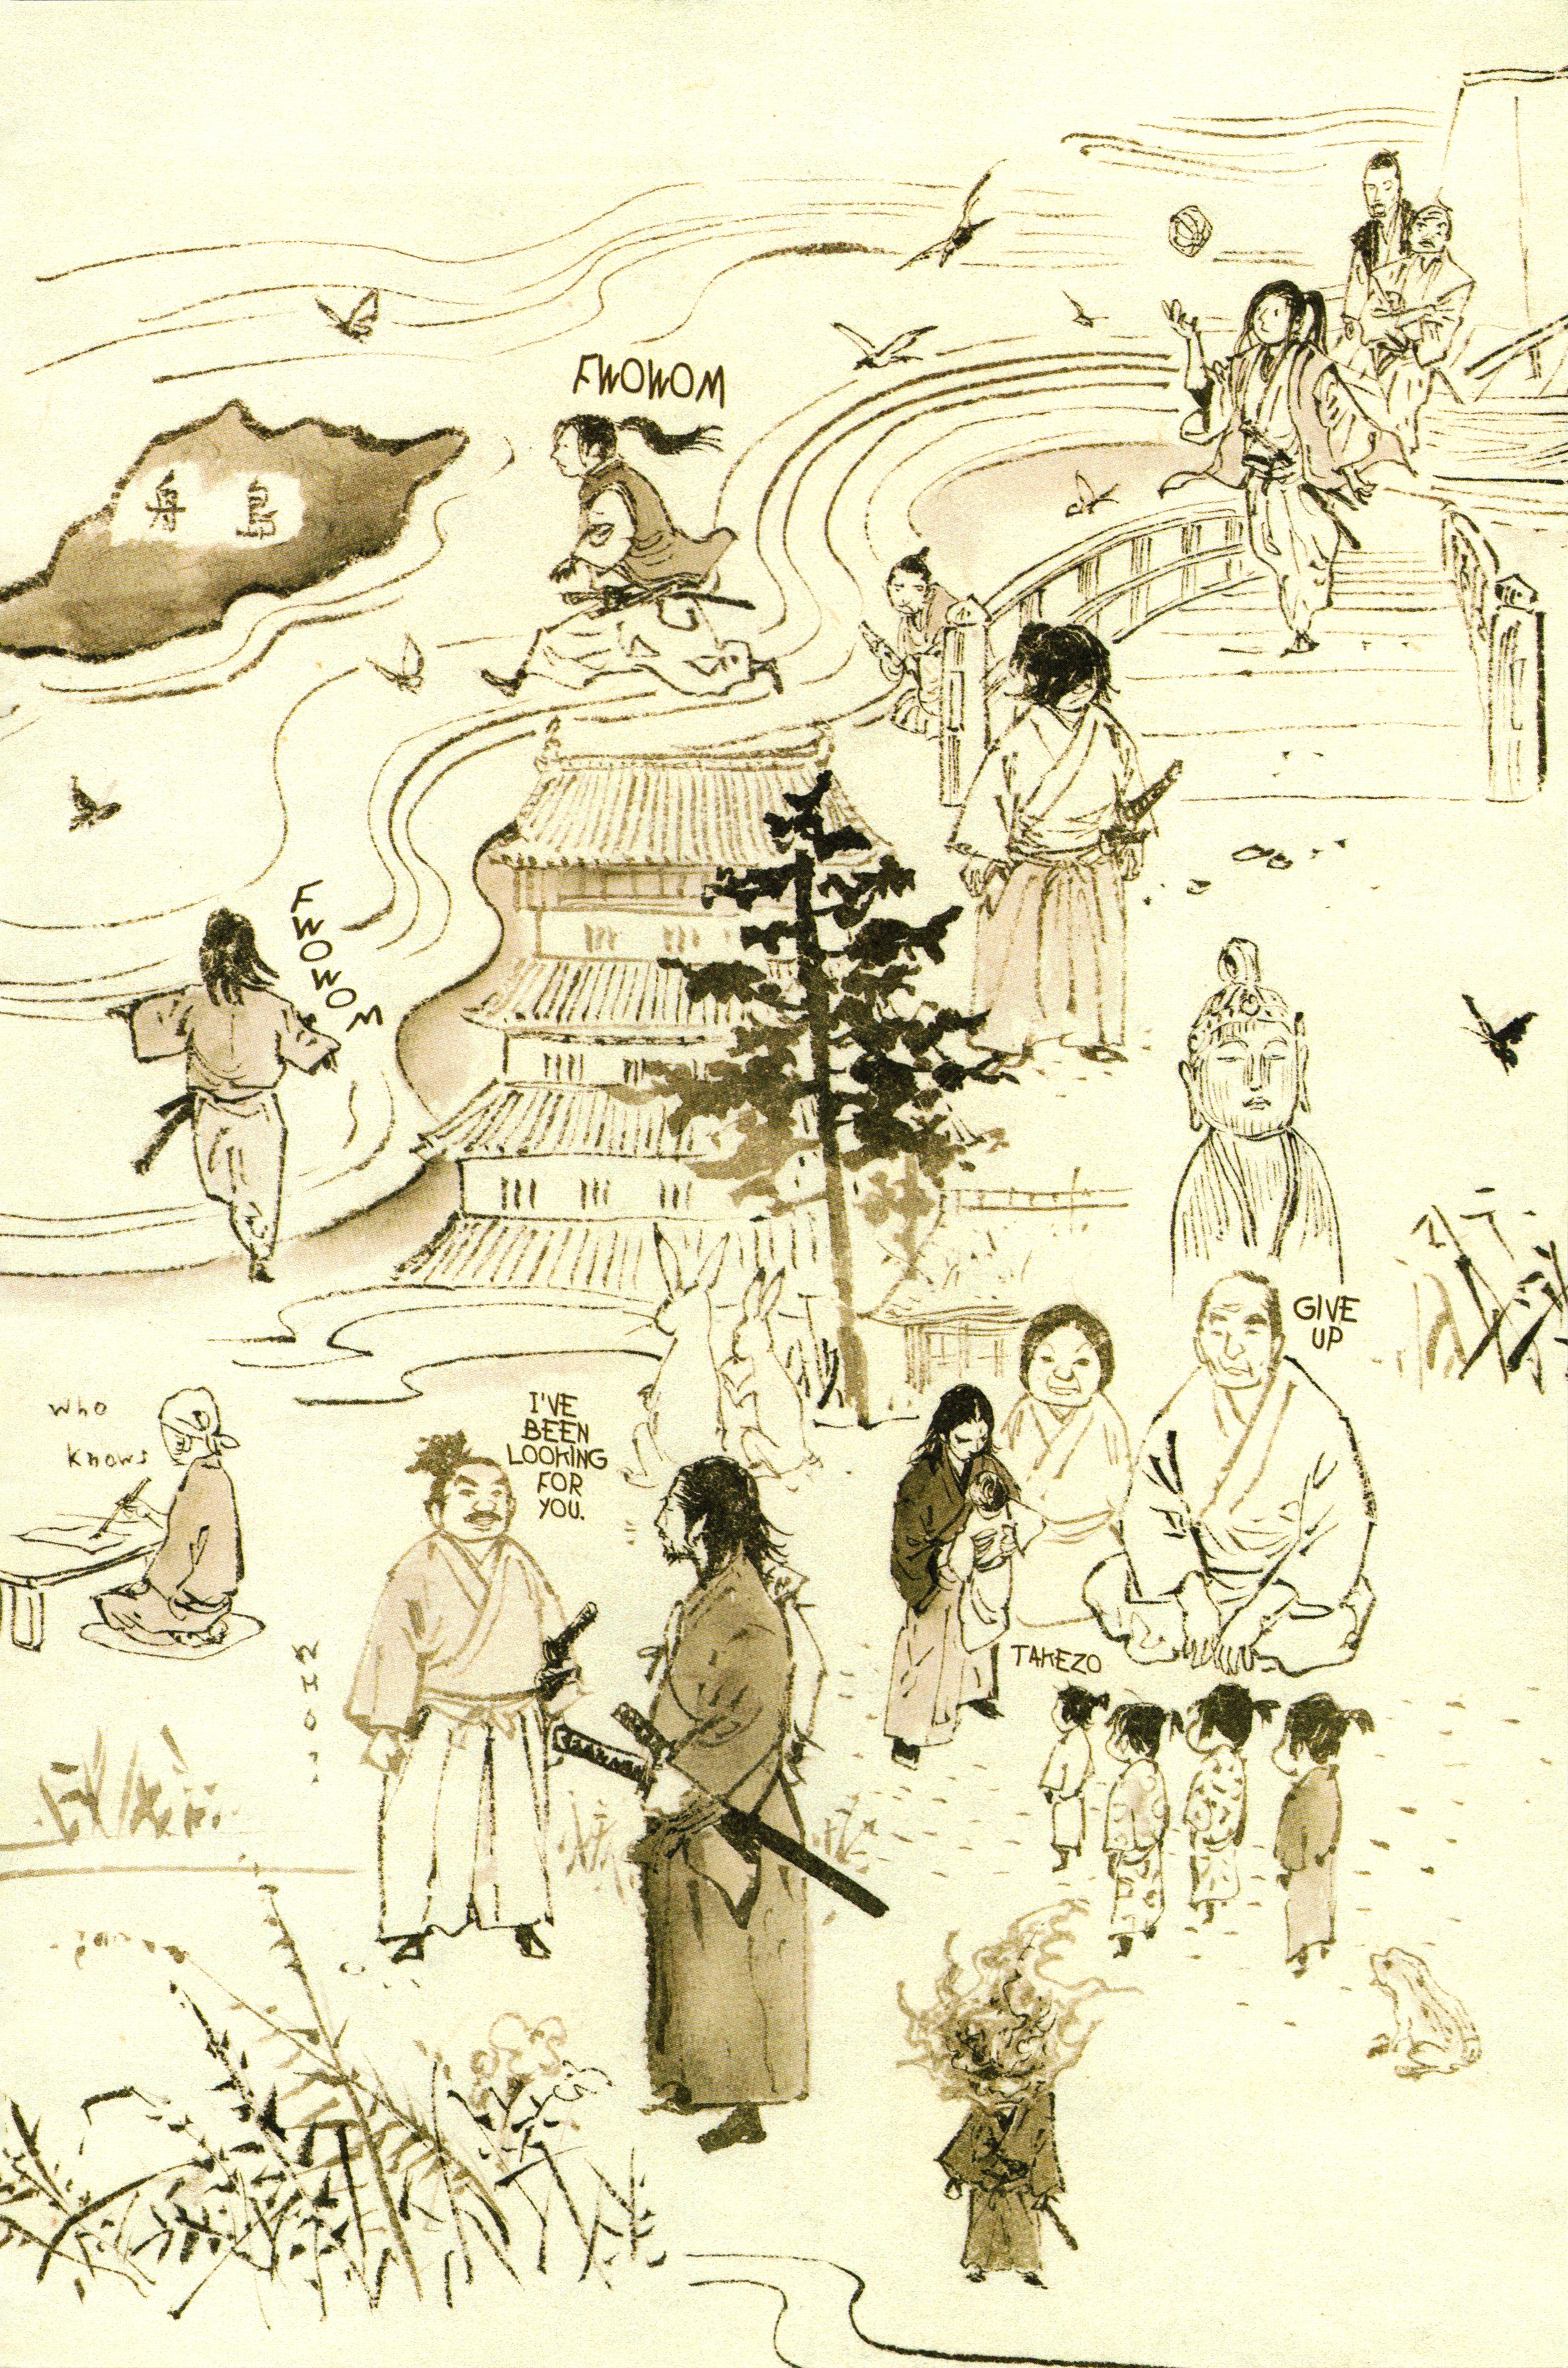 FWOWOM
舟島
FWOWOM
GIVE
UP
who
knows
I'VE
BEEN
LOOKING
FOR
YOU.
TAKEZO
WHO?